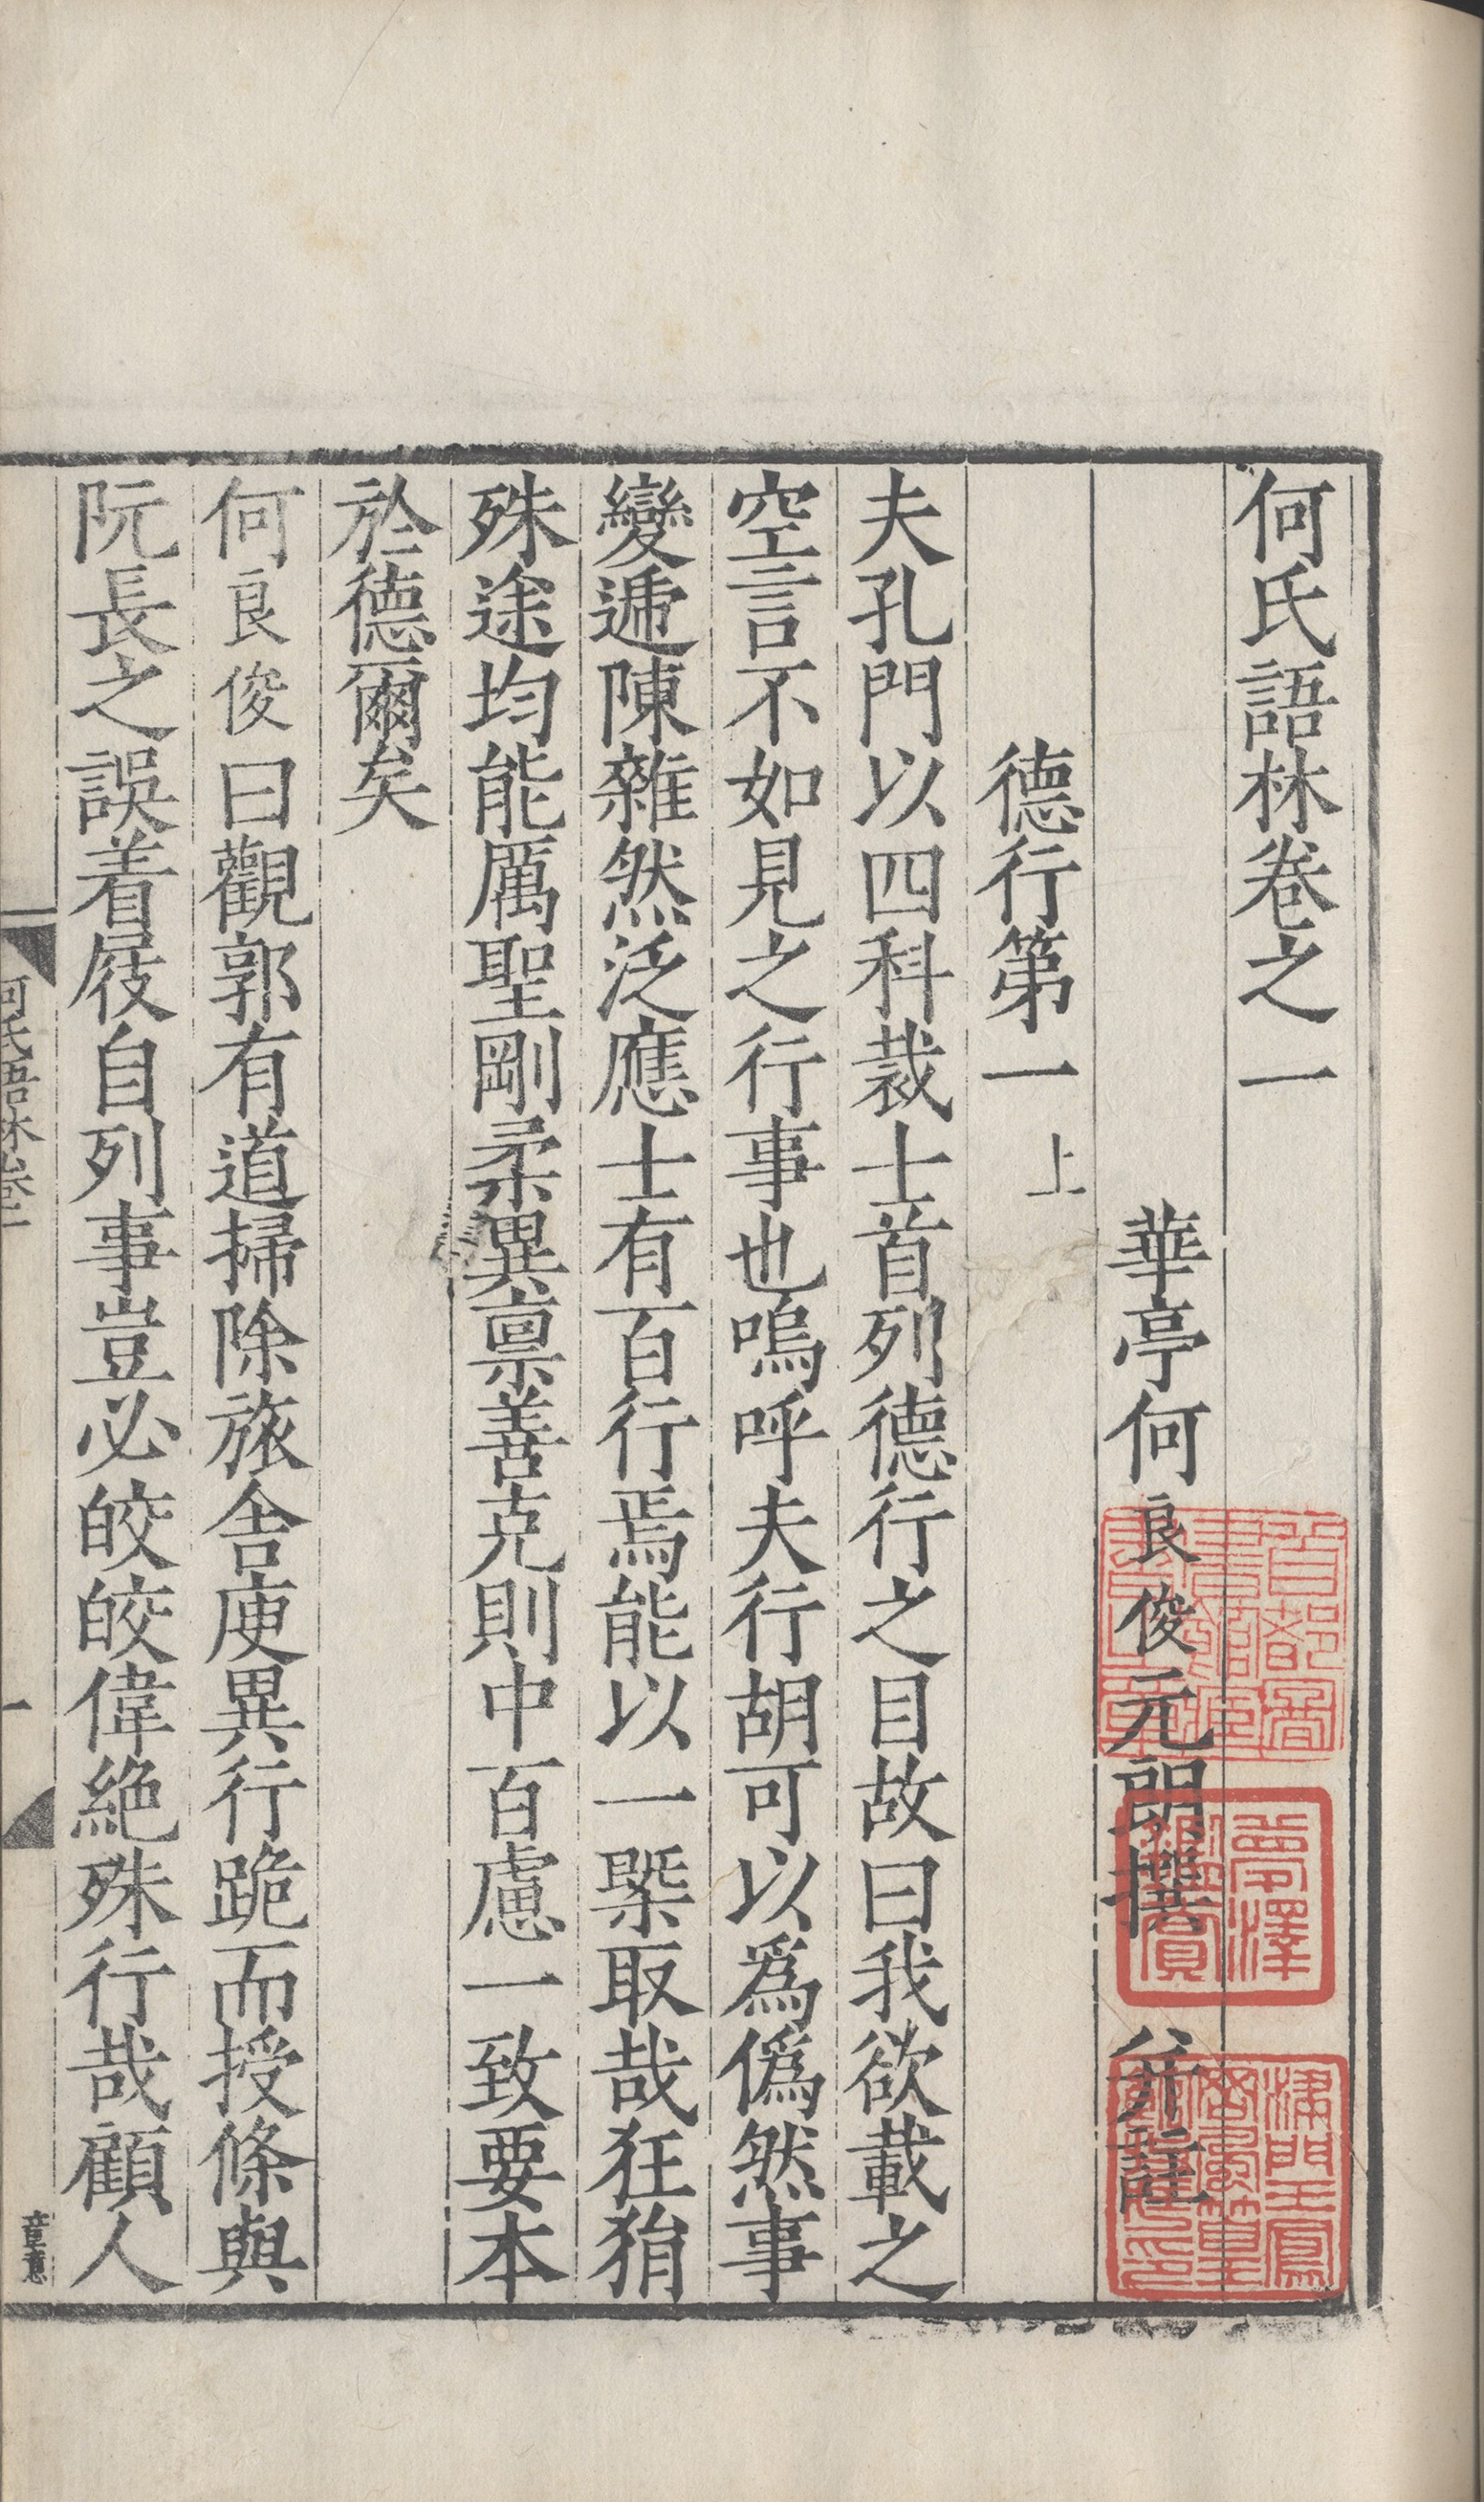 何氏語林卷之一
華亭何良俊元朗撰并註
德行第一上
夫孔門以四科裁士首列德行之目故曰我欲載之
空言不如見之行事也嗚呼夫行胡可以爲僞然事
變遞陳雜然泛應士有百行焉能以一槩取哉狂狷
殊途均能厲聖剛柔異禀善克則中百慮一致要本
於德爾矣
何良俊曰觀郭有道掃除旅舍庾異行跪而授條與
阮長之誤着屐自列事豈必皎皎偉絶殊行哉顧人
何氏語林卷一
一
章意
夢澤